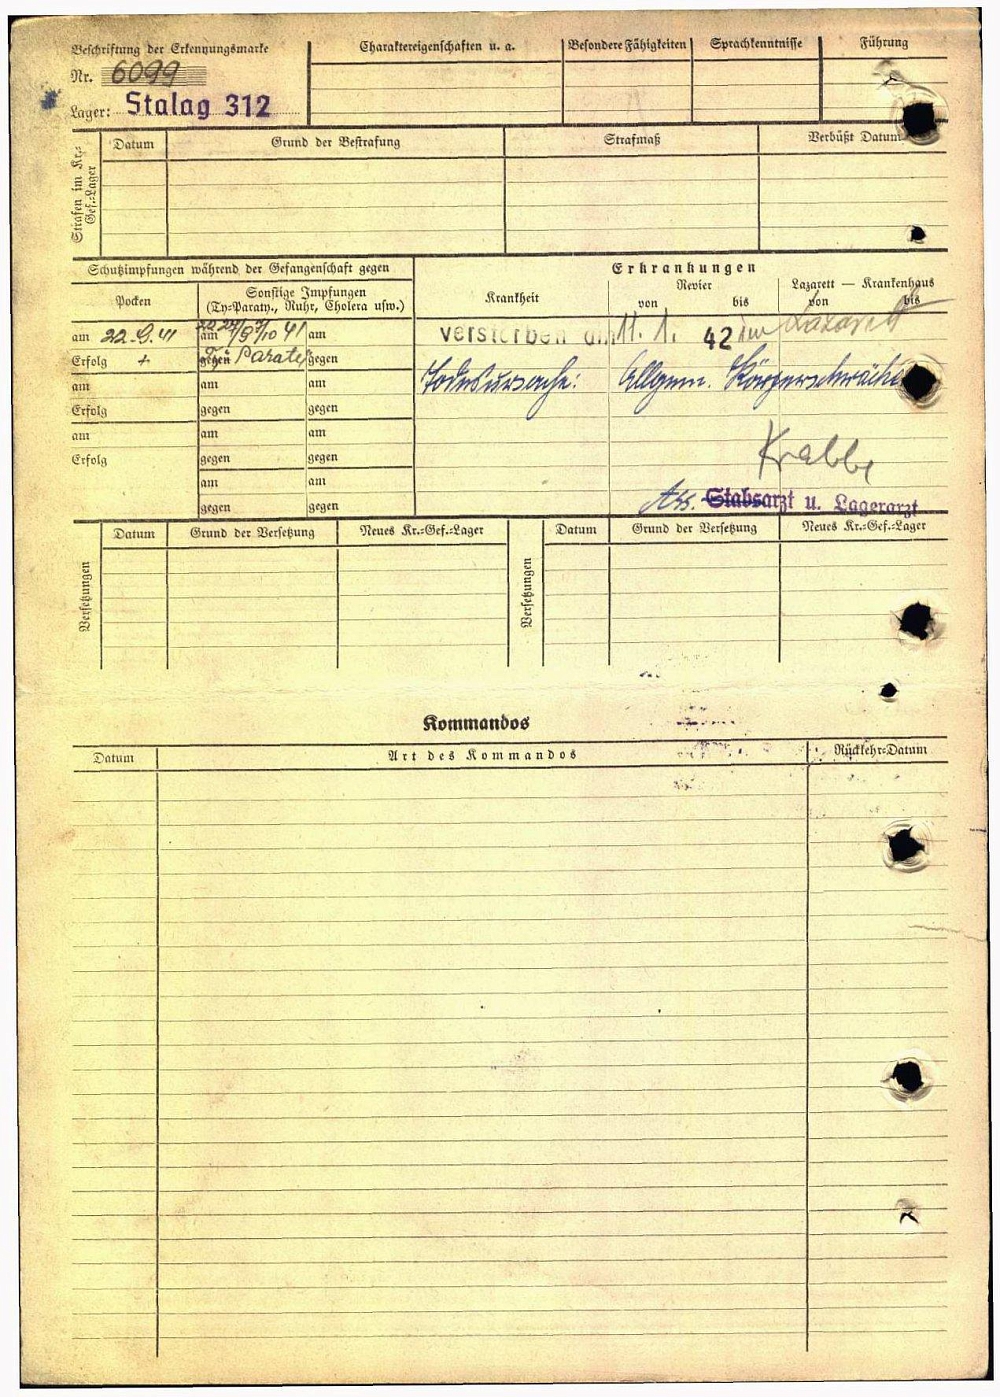 Beschriftung der Erkennungsmarke
Nr. 6099
Lager: Stalag 312
Charaktereigenschaften u. a.
Besondere Fähigkeiten
Sprachkenntnisse
Führung
Strafen im Kr.-Gef.-Lager
Datum
Grund der Bestrafung
Strafmaß
Verbüßt Datum
Schutzimpfungen während der Gefangenschaft gegen
Pocken
Sonstige Impfungen
(Ty-Paraty., Ruhr, Cholera usw.)
am 22.9.41 am 10 41 am
Erfolg + gegen gegen
am am am
Erfolg gegen gegen
am am am
Erfolg gegen gegen
am am
gegen gegen
Erkrankungen
Krankheit
Revier
von bis
Lazarett — Krankenhaus
von bis
verstorben am 11. 1. 42 im Lazarett
Todesursache: Allgem. Körperschwäche
Krabbe
Ass. Stabsarzt u. Lagerarzt
Versetzungen
Datum
Grund der Versetzung
Neues Kr.-Gef.-Lager
Versetzungen
Datum
Grund der Versetzung
Neues Kr.-Gef.-Lager
Kommandos
Datum
Art des Kommandos
Rückkehr-Datum